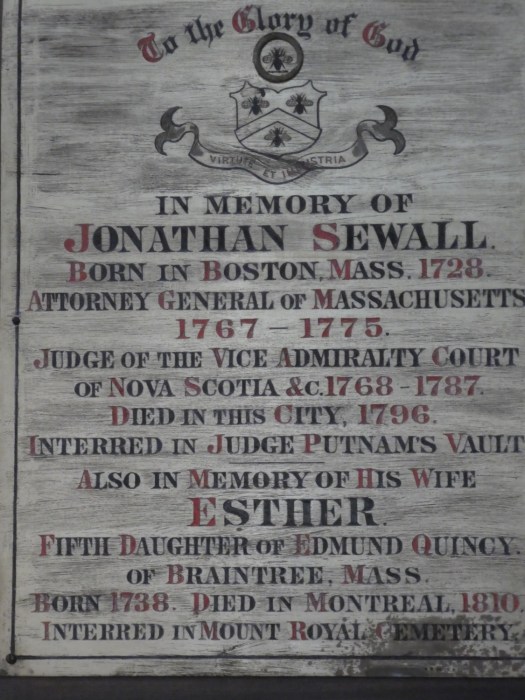 To the Glory of God
VIRTUTE ET INDUSTRIA
IN MEMORY OF
JONATHAN SEWALL.
BORN IN BOSTON, MASS. 1728.
ATTORNEY GENERAL OF MASSACHUSETTS
1767 – 1775.
JUDGE OF THE VICE ADMIRALTY COURT
OF NOVA SCOTIA &C. 1768 - 1787.
DIED IN THIS CITY, 1796.
INTERRED IN JUDGE PUTNAM'S VAULT
ALSO IN MEMORY OF HIS WIFE
ESTHER.
FIFTH DAUGHTER OF EDMUND QUINCY,
OF BRAINTREE, MASS.
BORN 1738. DIED IN MONTREAL, 1810.
INTERRED IN MOUNT ROYAL CEMETERY.